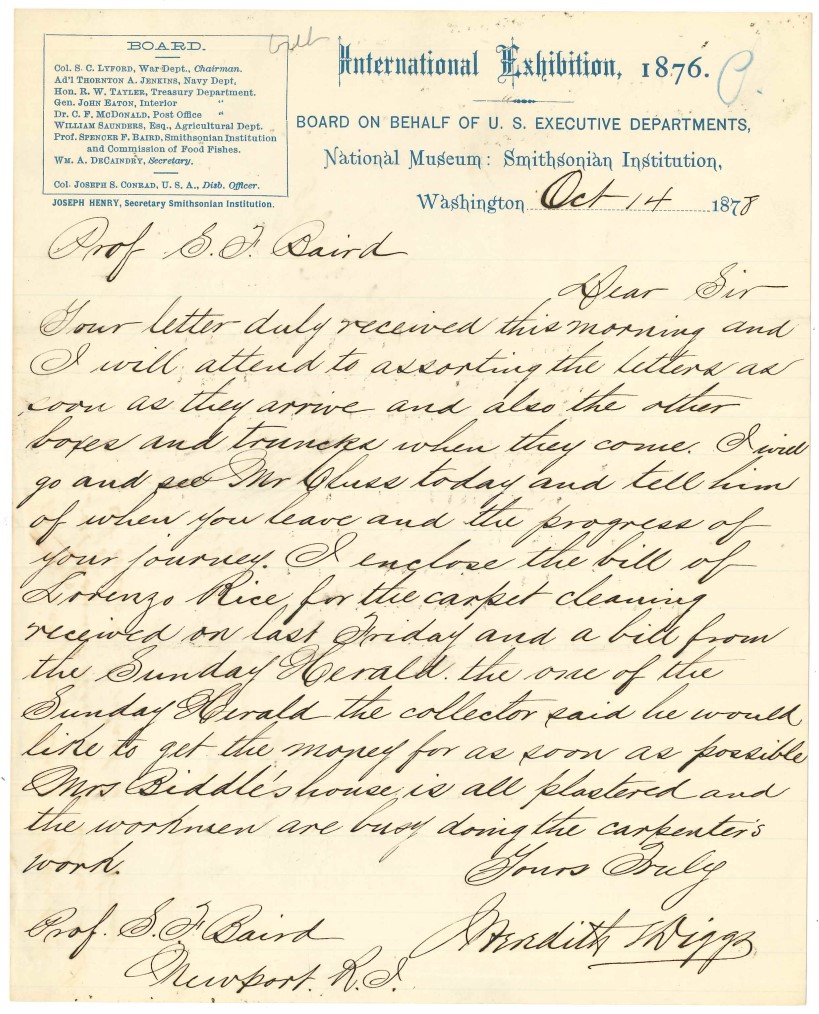 BOARD.
Col. S. C. LYFORD, War Dept., Chairman.
Ad'l THORNTON A. JENKINS, Navy Dept,
Hon. R. W. TAYLER, Treasury Department.
Gen. JOHN EATON, Interior "
Dr. C. F. McDONALD, Post Office "
WILLIAM SAUNDERS, Esq., Agricultural Dept.
Prof. SPENCER F. BAIRD, Smithsonian Institution
and Commission of Food Fishes.
WM. A. DeCAINDRY, Secretary.
Col. JOSEPH S. CONRAD, U. S. A., Disb. Officer.
JOSEPH HENRY, Secretary Smithsonian Institution.
International Exhibition, 1876.
BOARD ON BEHALF OF U. S. EXECUTIVE DEPARTMENTS,
National Museum: Smithsonian Institution,
Washington Oct 14 1878
Prof S. F. Baird
Dear Sir
Your letter duly received this morning and
I will attend to assorting the letters as
soon as they arrive and also the other
boxes and truncks when they come. I will
go and see Mr Cluss today and tell him
of when you leave and the progress of
your journey. I enclose the bill of
Lorenzo Rice for the carpet cleaning
received on last Friday and a bill from
the Sunday Herald. the one of the
Sunday Herald the collector said he would
like to get the money for as soon as possible
Mrs Biddle's house is all plastered and
the workmen are busy doing the carpenter's
work.
Yours Truly
Prof. S. F. Baird
Meredith Diggs
Newport. R. I.